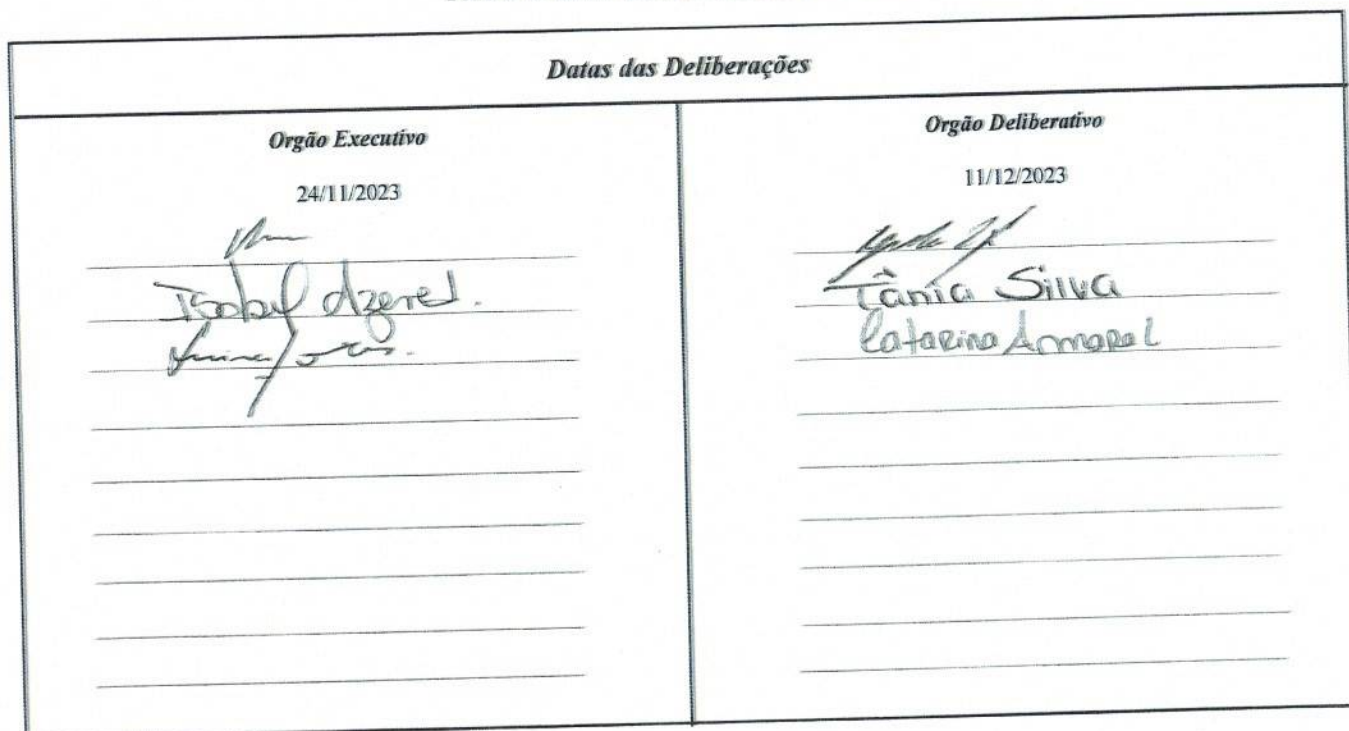 Datas das Deliberações
Orgão Executivo
24/11/2023
Isabel Azeved.
Orgão Deliberativo
11/12/2023
Tânia Silva
Catarina Amaral